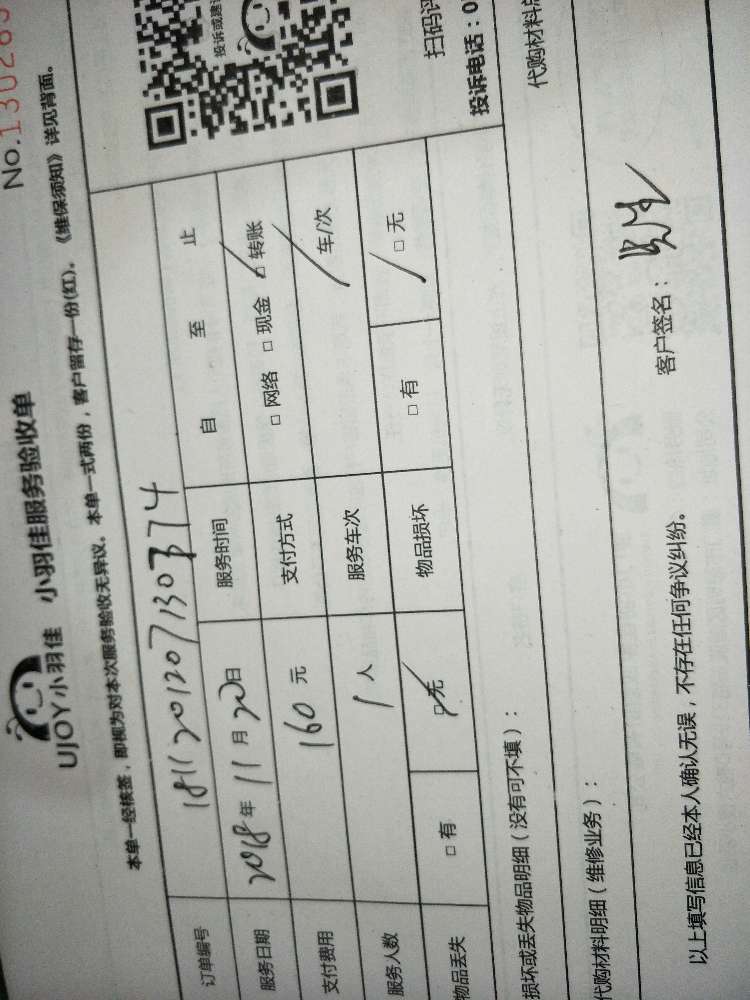 No.130283
UJOY小羽佳 小羽佳服务验收单
本单一经核签，即视为对本次服务验收无异议。本单一式两份，客户留存一份(红)。《维保须知》详见背面。
订单编号 181120120713​0374
服务日期 2018年11月20日 服务时间 自 至 止
支付费用 160元 支付方式 □网络 □现金 □转账
服务人数 1人 服务车次 车/次
物品丢失 □有 □无 物品损坏 □有 □无
投诉或建议
扫码评
投诉电话：0
损坏或丢失物品明细（没有可不填）：
代购材料明细（维修业务）： 代购材料总
以上填写信息已经本人确认无误，不存在任何争议纠纷。 客户签名：